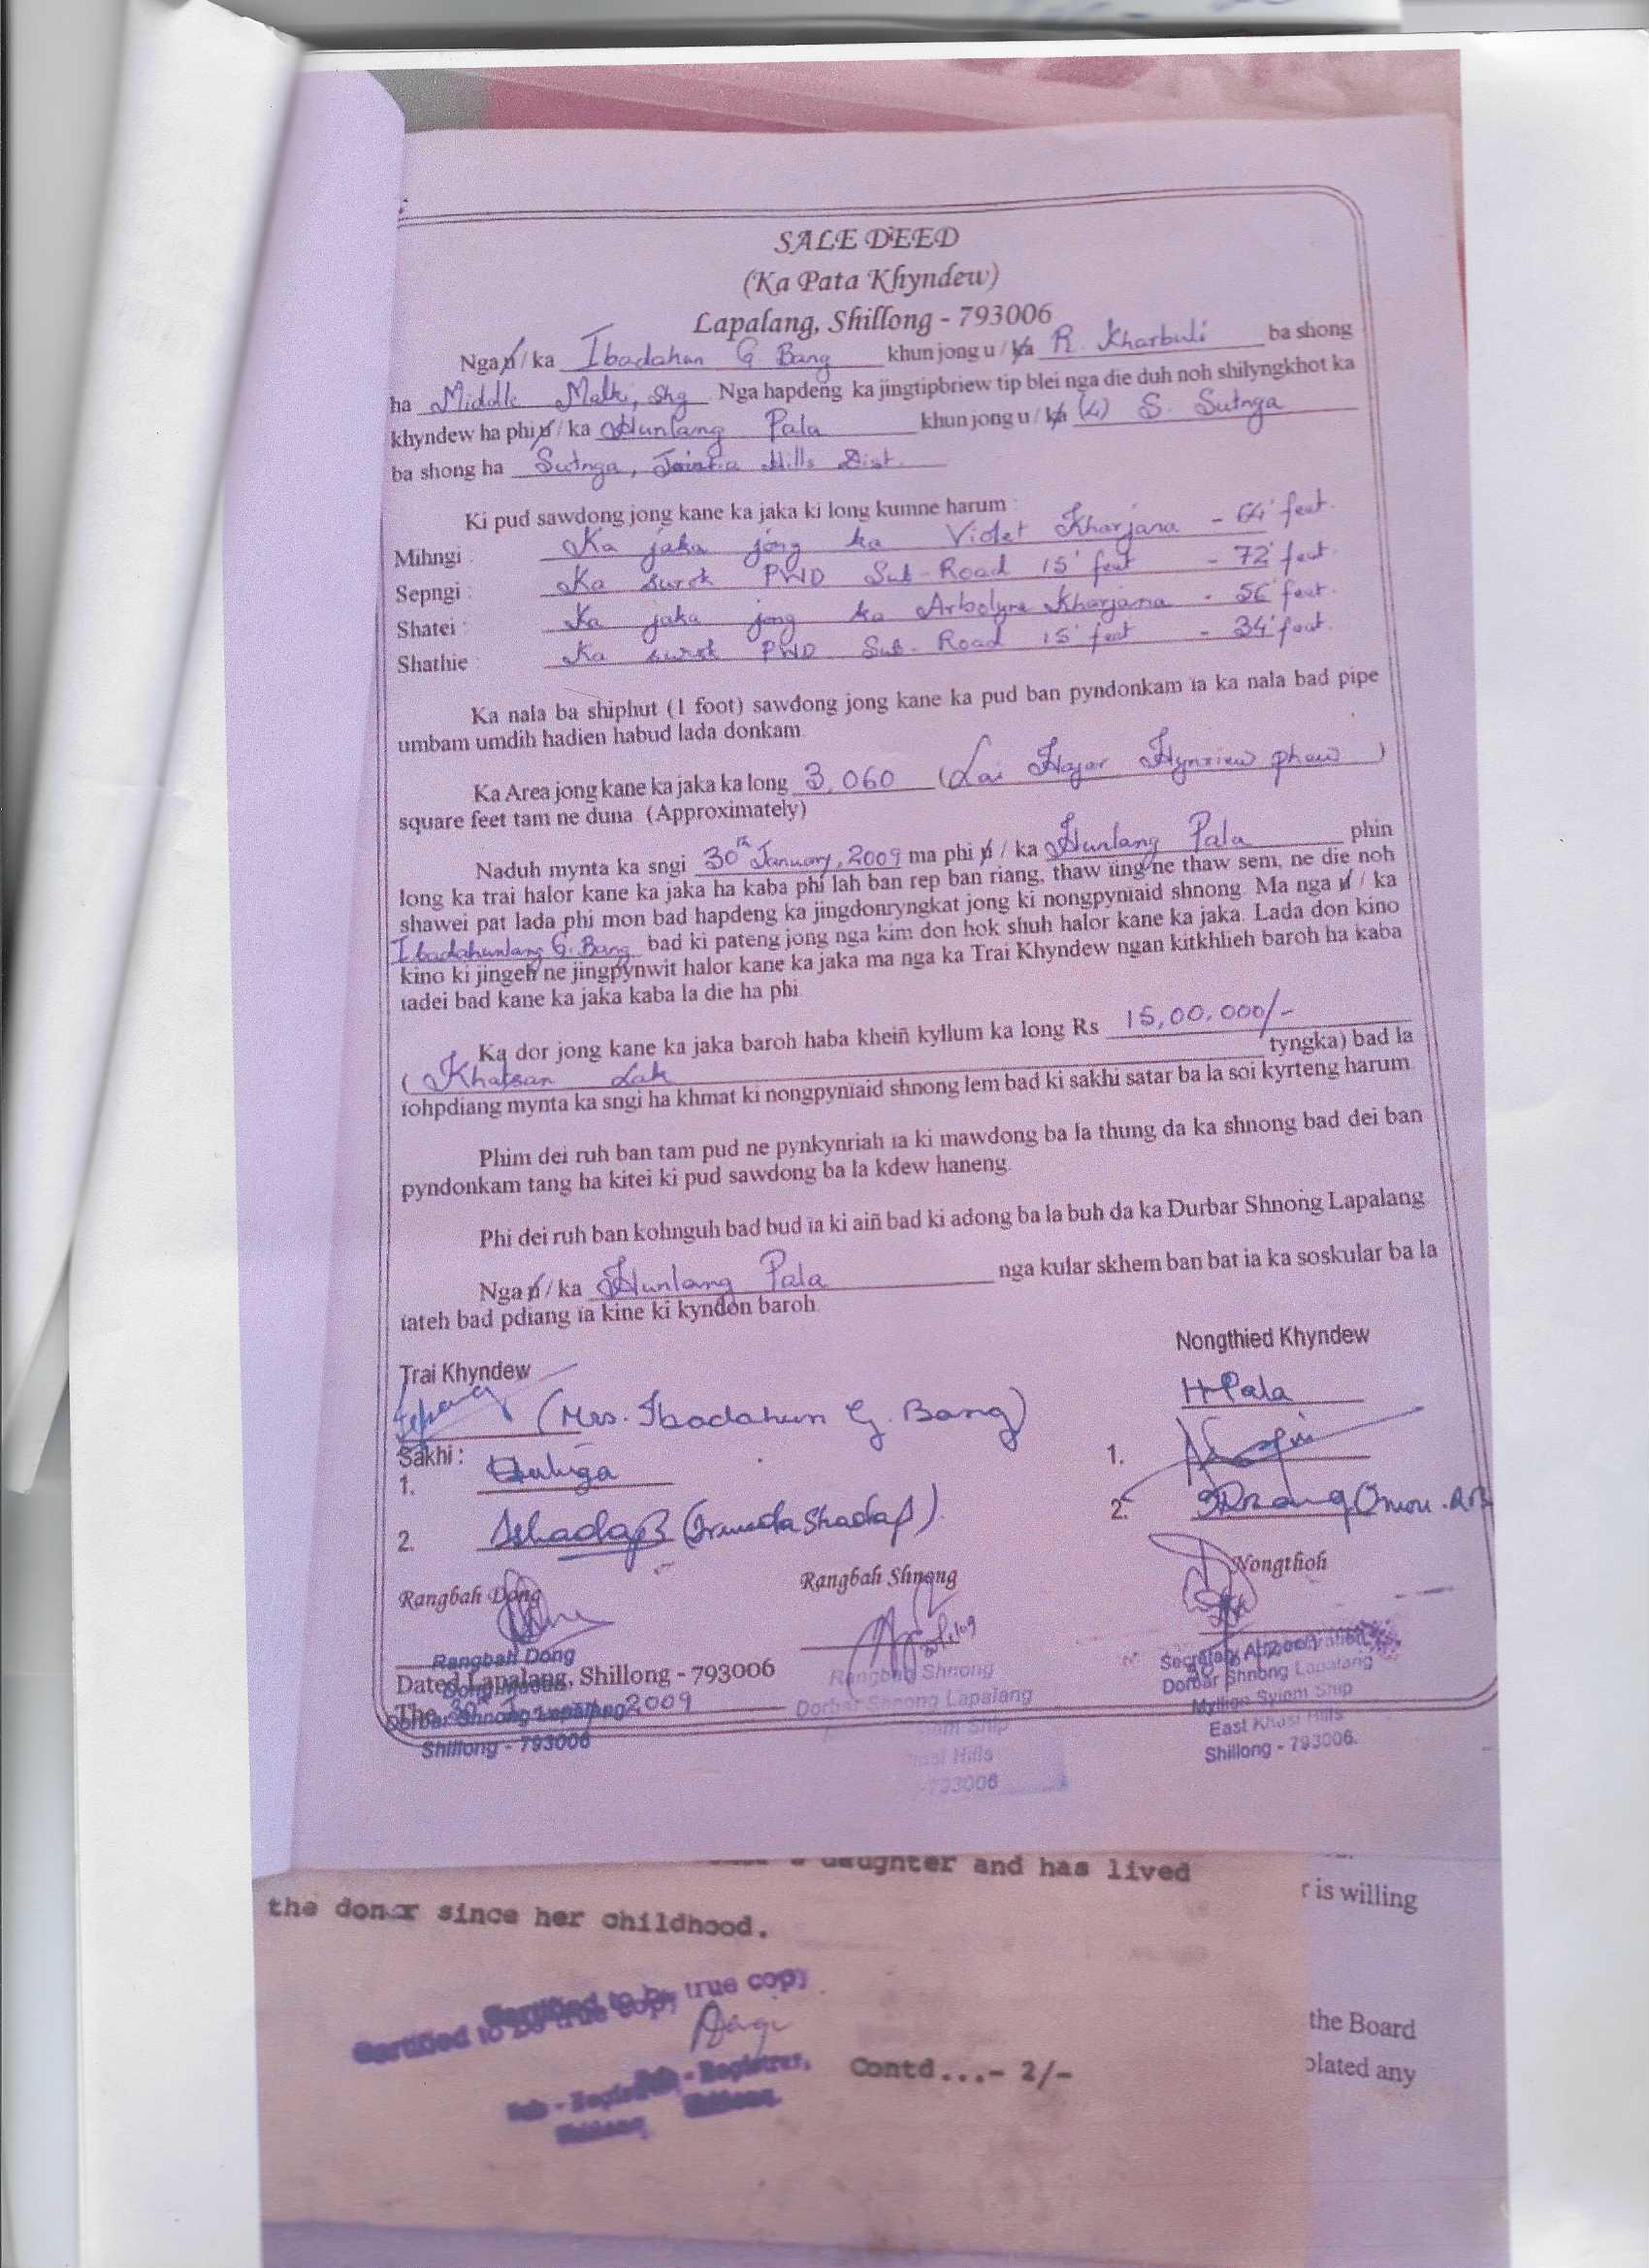 SALE DEED
(Ka Pata Khyndew)
Lapalang, Shillong - 793006
Nga u / ka Ibadahun G. Bang khun jong u / ka R. Kharbuli ba shong
ha Middle Malki, Shg. Nga hapdeng ka jingtipbriew tip blei nga die duh noh shilyngkhot ka
khyndew ha phi u / ka Hunlang Pala khun jong u / ka (L) S. Sutnga
ba shong ha Sutnga, Jaintia Hills Dist.
Ki pud sawdong jong kane ka jaka ki long kumne harum :
Mihngi : Ka jaka jong ka Violet Kharjana - 64' feet.
Sepngi : Ka surok PWD Sub-Road 15' feet - 72' feet.
Shatei : Ka jaka jong ka Arbolyne Kharjana - 56' feet.
Shathie : Ka surok PWD Sub-Road 15' feet - 34' feet.
Ka nala ba shiphut (1 foot) sawdong jong kane ka pud ban pyndonkam ïa ka nala bad pipe
umbam umdih hadien habud lada donkam.
Ka Area jong kane ka jaka ka long 3,060 (Lai Hajar Hynriew phew)
square feet tam ne duna. (Approximately)
Naduh mynta ka sngi 30th January, 2009 ma phi u / ka Hunlang Pala phin
long ka trai halor kane ka jaka ha kaba phi lah ban rep ban riang, thaw ïing ne thaw sem, ne die noh
shawei pat lada phi mon bad hapdeng ka jingdonryngkat jong ki nongpyniaid shnong. Ma nga u / ka
Ibadahunlang G. Bang bad ki pateng jong nga kim don hok shuh halor kane ka jaka. Lada don kino
kino ki jingeh ne jingpynwit halor kane ka jaka ma nga ka Trai Khyndew ngan kitkhlieh baroh ha kaba
ïadei bad kane ka jaka kaba la die ha phi.
Ka dor jong kane ka jaka baroh haba kheiñ kyllum ka long Rs 15,00,000/-
( Khatsan Lak tyngka) bad la
ïohpdiang mynta ka sngi ha khmat ki nongpyniaid shnong lem bad ki sakhi satar ba la soi kyrteng harum.
Phim dei ruh ban tam pud ne pynkynriah ïa ki mawdong ba la thung da ka shnong bad dei ban
pyndonkam tang ha kitei ki pud sawdong ba la kdew haneng.
Phi dei ruh ban kohnguh bad bud ïa ki aiñ bad ki adong ba la buh da ka Durbar Shnong Lapalang
Nga u / ka Hunlang Pala nga kular skhem ban bat ïa ka soskular ba la
ïateh bad pdiang ïa kine ki kyndon baroh.
Trai Khyndew
Nongthied Khyndew
(Mrs. Ibadahun G. Bang)
H Pala
Sakhi :
1.
1.
2. (Irmuda Shadap)
2.
Rangbah Dong
Rangbah Shnong
Nongthoh
Rangbah Dong
Dated Lapalang, Shillong - 793006
The 2009
Dorbar Shnong Lapalang
Shillong - 793006
Rangbah Shnong
Dorbar Shnong Lapalang
Hills
-793006
Secretary
Dorbar Shnong Lapalang
Mylliem Syiem Ship
East Khasi Hills
Shillong - 793006.
daughter and has lived
the donor since her childhood.
Certified to be true copy
Certified to be true copy
Sub - Registrar,
Shillong
Sub - Registrar,
Shillong
Contd...- 2/-
r is willing
the Board
olated any